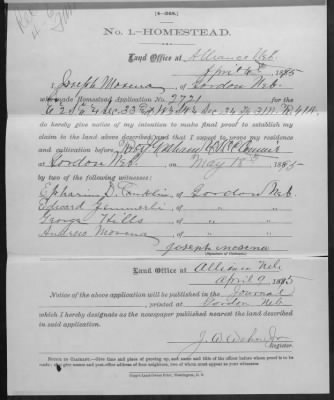 [4—348.]
No. 1.—HOMESTEAD.
Land Office at Alliance Neb.
April 6th 1895
I, Joseph Morena of Gordon Neb.
who made Homestead Application No. 2721 for the
do hereby give notice of my intention to make final proof to establish my
claim to the land above described, and that I expect to prove my residence
and cultivation before
at Gordon Neb. on May 18th 1895
by two of the following witnesses:
Conklin, of Gordon Neb
Edward Gimmerli, of " "
George Hills, of " "
Andrew Morena, of " "
Joseph Morena
(Signature of Claimant.)
Land Office at Alliance Neb
April 9, 1895
Notice of the above application will be published in the Journal
, printed at Gordon Neb
which I hereby designate as the newspaper published nearest the land described
in said application.
Register.
NOTICE TO CLAIMANT.—Give time and place of proving up, and name and title of the officer before whom proof is to be
made; also give names and post office address of four neighbors, two of whom must appear as your witnesses.